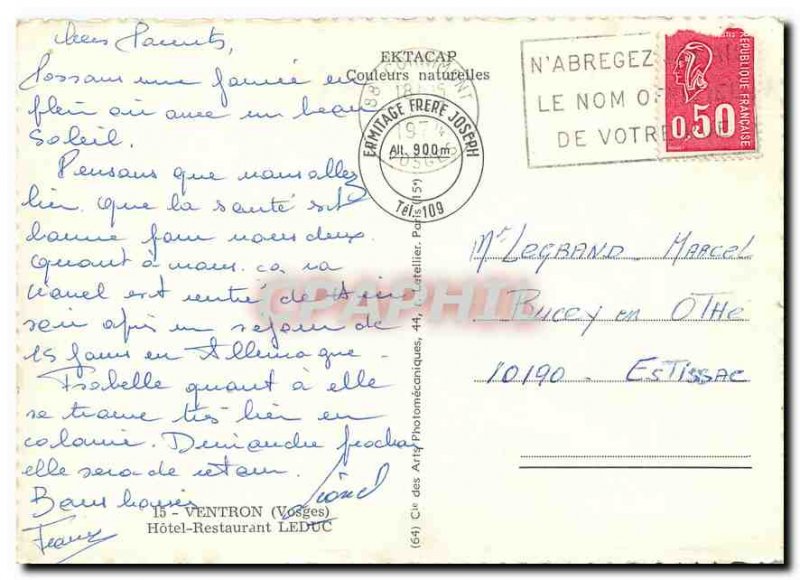 Chers Parents,
Passons une journée en
plein air avec un beau
soleil.
Pensons que vous allez
bien. Que la santé est
bonne pour vous deux.
Quant à nous. ça va
Lionel est rentré de
soir après un séjour de
15 jours en Allemagne -
Isabelle quant à elle
se trouve très bien en
colonie. Dimanche prochain
elle sera de retour.
Bons baisers
Lionel
15 - VENTRON (Vosges)
Hôtel-Restaurant LEDUC
EKTACAP
Couleurs naturelles
88 CORNIMONT
18 H 15
197
VOSGES
ERMITAGE FRERE JOSEPH
Alt. 900m
Tél. 109
N'ABREGEZ
LE NOM OFFICIEL
DE VOTRE
REPUBLIQUE FRANÇAISE
0,50
(64) Cie des Arts Photomécaniques, 44, r. Letellier, Paris (15e)
CPAPHIL
Mr LEGRAND. MARCEL
BUCEY en OTHE
10190 - ESTISSAC